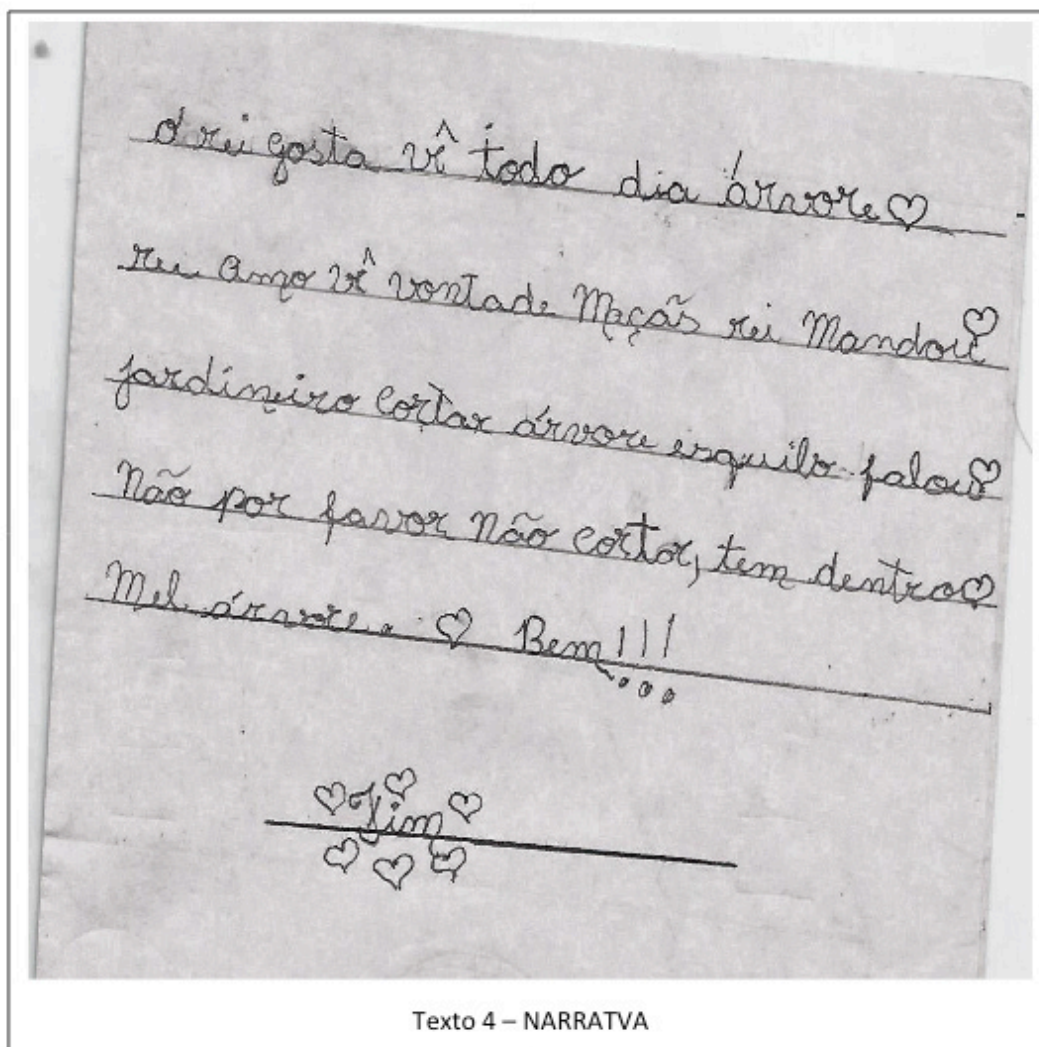 o rei gosta vê todo dia árvore♡
rei amo vê vontade Maçãs rei Mandou♡
jardineiro cortar árvore esquilo falou♡
Não por favor não cortar, tem dentro♡
Mel árvore. ♡ Bem!!!...
Fim
Texto 4 – NARRATVA